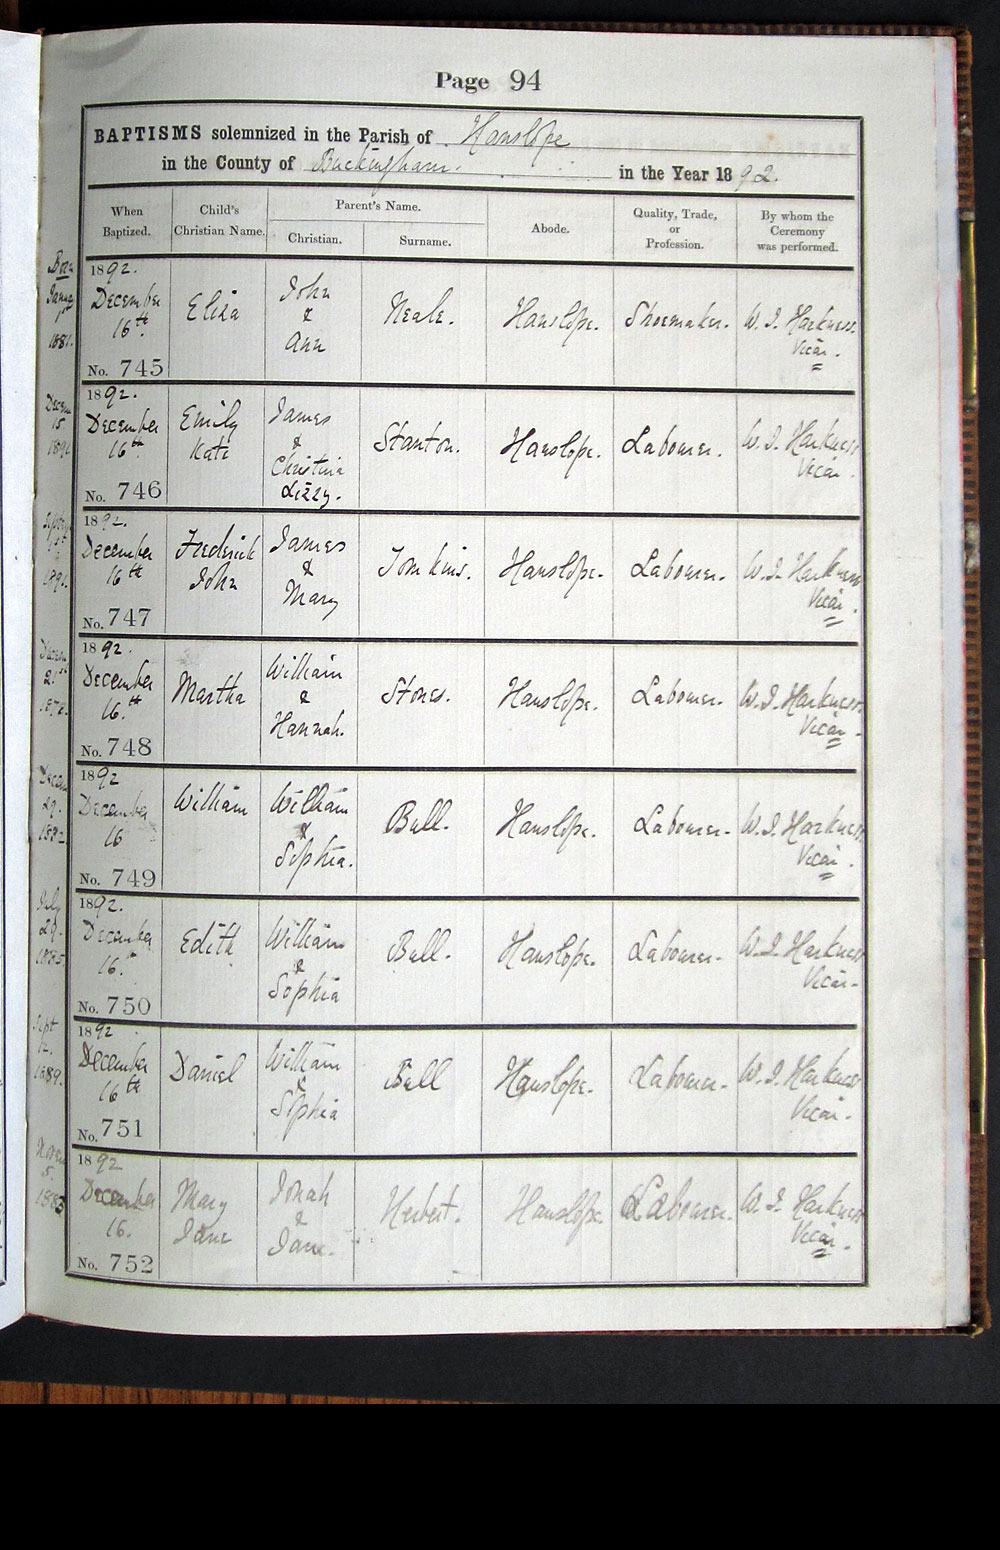 Page 94
BAPTISMS solemnized in the Parish of Hanslope
in the County of Buckingham. in the Year 1892.
When Baptized.
Child's Christian Name.
Parent's Name.
Christian.
Surname.
Abode.
Quality, Trade, or Profession.
By whom the Ceremony was performed.
Born
1892.
December
16th
No. 745
Eliza
John
&
Ann
Neale.
Hanslope.
Shoemaker.
W. J. Harkness.
Vicar.
Decem
15
1892.
December
16th
No. 746
Emily
Kate
James
&
Christina
Lizzy.
Stanton.
Hanslope.
Labourer.
W. J. Harkness
Vicar.
1892.
December
16th
No. 747
Frederick
John
James
&
Mary
Tomkins.
Hanslope.
Labourer.
W. J. Harkness
Vicar.
1892.
December
16.th
No. 748
Martha
William
&
Hannah.
Stones.
Hanslope.
Labourer.
W. J. Harkness.
Vicar.
29.
1892
December
16
No. 749
William
William
&
Sophia.
Bull.
Hanslope.
Labourer.
W. J. Harkness.
Vicar.
July
29.
1885
1892.
December
16.
No. 750
Edith
William
&
Sophia
Bull.
Hanslope.
Labourer.
W. J. Harkness
Vicar.
Sept
12.
1889.
1892
December
16th
No. 751
Daniel
William
&
Sophia
Bull
Hanslope.
Labourer.
W. J. Harkness
Vicar.
5.
1883
1892
December
16.
No. 752
Mary
Jane
Jonah
&
Jane.
Herbert.
Hanslope.
Labourer.
W. J. Harkness
Vicar.